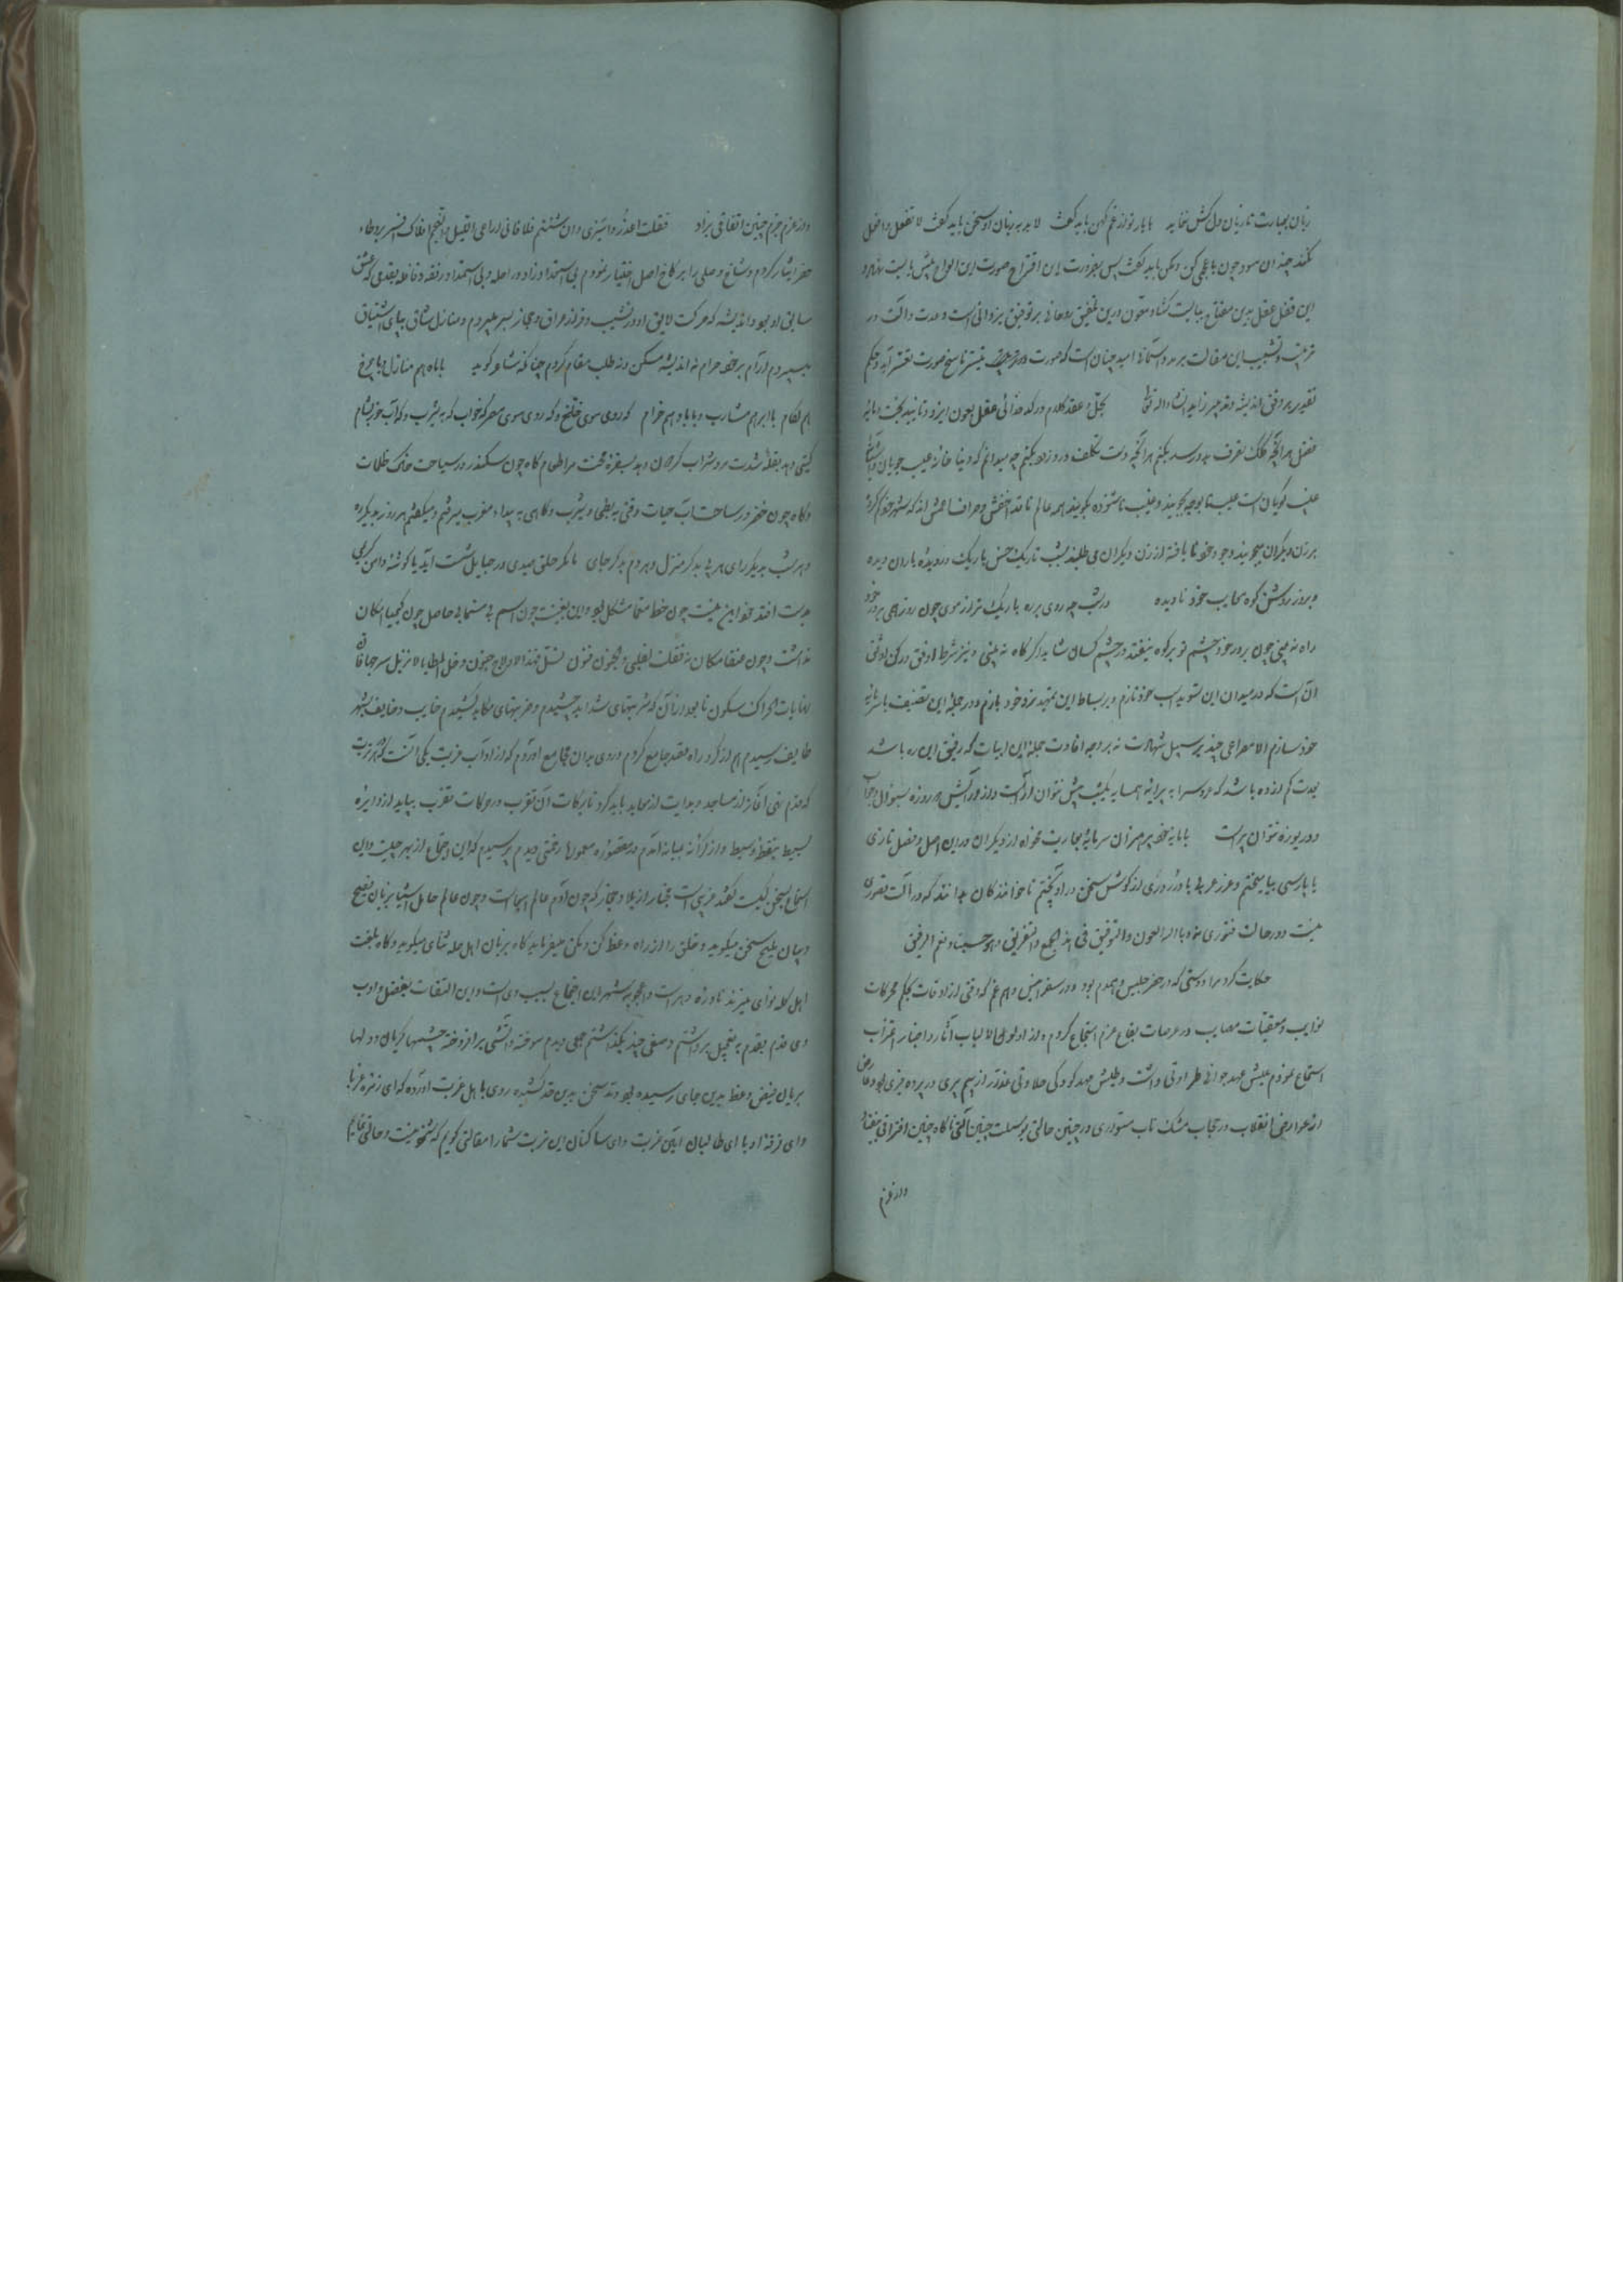 زبان بعبارت تازیان دل کش نماید با یار نو از غم کهن باید گفت لابد بزبان او سخن باید گفت لا تفعل و افعل
نکند چندان سود چون با عجمی کن و مکن باید گفت پس بضرورت این اقتراح صورت این الواح پیش بایست نهاد و
این قفل عقل بدین مفتاح ببایست گشاد
ترتیب و تشبیب این مقالت بر مدد استمداد امید چنان است که صورت
تقدیر بر وفق اندیشه و تدبیر زاید انشاء الله تعالی بحل و عقد کلام در کدخدائی عقل بعون ایزد و تایید بخت و مایه
فضل هر آنچه کلک تصرف بدو رسد بکنم هر آنچه دست تکلف درو زند بکنم چه میدانم که دنیا خانه عیب جویان و آشیانه
عیب گویان است عیب نا بوده بجویند و غیب ناشنوده بگویند همه عالم ناقد اخفش و صراف اعمش اند که ستور خود کم کرده
بر زن دیگران میجویند و جو خود نا یافته از زن دیگران می طلبند بشب تاریک خس باریک در دیده یاران دیده
و بروز روشن کوه معایب خود نادیده در شب چه روی بره باریک تر از موی چون روز همی بر در خود
راه نه بینی چون بر در خود چشم تو بر کوه نیفتد در چشم کسان شاید اگر کاه نه بینی و نیز شرط اوفق و رکن اوثق
آن است که در میدان این تسوید اسب خود تازم و بر بساط این تمهید نرد خود بازم و در جمله این تصنیف با سرمایه
خود سازم الا مصراعی چند بر سبیل شهادت نه بر وجه افادت جمله این ابیات که رفیق این ره باشد
بیت کم زده باشد که عروسی را به پیرایه همسایه یکشب بیش نتوان آراست و از در آتش هر روزه بسؤال و جواب
و دریوزه نتوان خواست با مایه خود بر میزان سرمایه تجارت مخواه از دیگران در این اصل و فصل تازی
با پارسی بیامیختم و غرر عربی با درر دری از گوش سخن در آویختم تا خوانندگان بدانند که در آلت قصوری
نیست و در حالت فتوری نه و بالله العون و التوفیق فی هذا الجمع و التفریق و هو حسبنا و نعم الرفیق
حکایت کرد مرا دوستی که در حضر جلیس و همدم بود و در سفر انیس و هم غم که وقتی از اوقات بحکم محرکات
نوایب و معقبات مصایب در عرصات بقاع عزم انتجاع کردم و از اولوالالباب آثار و اخبار اغتراب
استماع نمودم عیش عهد جوانی طراوتی داشت و طیش مهد کودکی حلاوتی عذار از بیم پیری در پرده قیری بود و عارض
از عوارض انقلاب در حجاب مشک ناب متواری در چنین حالتی بوسیلت چنین آلتی ناگاه چنین افتراقی بیفتاد
و از عزم
و از عزم جزم چنین اتفاقی بزاد فقلت اعذروا سیری و ان شئتم فلا فانی اراعی اللیل و النجم افلاک السیر بر وطاء
حضر ایثار کردم و شاخ وصلی را بر کاخ اصل اختیار نمودم بی استعداد زاد و راحله و بی استمداد رفقه و قافله بقدمی که عشق
سایق او بود و اندیشه که حرکت لایق او در نشیب و فراز عراق و حجاز بسر میبردم و منازل شاق بپای اشتیاق
میسپردم و آرام بر خود حرام نه اندیشه مسکن و نه طلب مقام کردم چنانکه شاعر گوید با ماه هم منازل و با چرخ
هم لگام با ابر هم مشارب و با باد هم خرام که روی سوی خلخ و که روی سوی مصر که خواب که به یثرب و که آب خور بشام
گاه چون سکندر در سیاحت خاک ظلمات
و گاه چون خضر در ساحت آب حیات وقتی به بطحی و یثرب و گاهی به بیداء مغرب میرفتم و میگفتم هر روز بدیگر ره
و هر شب بدیگر رای هر پی بدگر منزل و هر دم بدگر جای تا مگر حلق صیدی در حبایل شست آید یا گوشه دامن کریمی
بدست افتد خود این نیت چون خط معما مشکل بود و این بغیت چون اسم بی مسما بی حاصل چون کیمیا امکان
نداشت و چون عنقا مکان نه فقلت لقلبی و الجنون فنون
نهایات الحراک سکون تا بعد از آن که شربتهای شداید چشیدم و ضربتهای مکاید کشیدم خایب و خایف بشهر
طایف رسیدم هم از گرد راه قصد جامع کردم و روی بدان مجامع آوردم که از آداب غربت یکی آنست که هر تربت
که قدم نهی آغاز از مساجد و بدایت از معابد باید کرد تا برکات آن تقرب در حرکات تغرب بیاید از دایره
بسیط بنقطه وسیط و از کرانه بمیانه آمدم در مقصوره معموره زحمتی دیدم پرسیدم که این اجتماع از بهر چیست و این
استماع بسخن کیست گفتند غریبی است مجتاز از بلاد حجاز که چون آدم عالم اسماست و چون عالم حامل اشیا بزبان فصیح
و بیان ملیح سخن میگوید و خلق را از راه وعظ کن و مکن میفرماید گاه بزبان اهل حله ثنای میگوید و گاه بلغت
اهل کله نوای میزند نادره دهر است و اعجوبه شهر این اجتماع بسبب وی است و این التفات بفضل و ادب
وی قدم بقدم به تعجیل برداشتم و صفی چند بگذاشتم جمعی دیدم سوخته و آتشی برافروخته چشمها گریان و دلها
بریان فیض وعظ بدین جای رسیده بود و تیغ سخن بدین حد کشیده روی با اهل غربت آورده که ای زمره غربا
و ای فرقه ادبا ای طالبان آیین غربت و ای ساکنان این تربت شما را مقالتی گویم که شنوید و حالتی نمایم